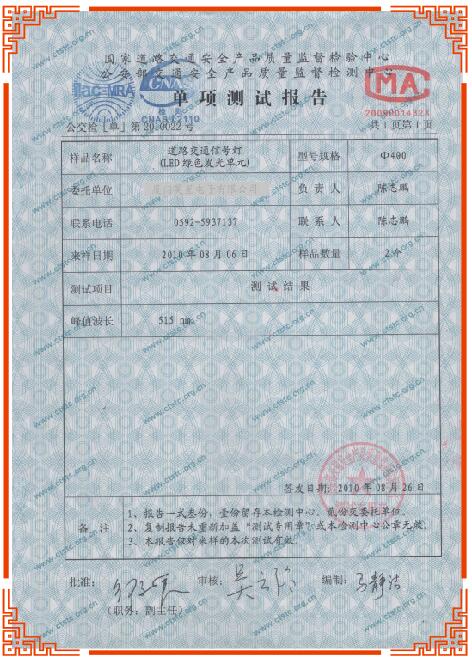 国家道路交通安全产品质量监督检验中心
公安部交通安全产品质量监督检测中心
CNAS
MA
单项测试报告
公交检 [单] 第200022号
共1页第1页
样品名称 道路交通信号灯 (LED绿色发光单元) 型号规格 Φ400
委托单位 负责人 陈志鹏
联系电话 0592-5937137 联系人 陈志鹏
来样日期 2010年08月06日 样品数量 2个
测试项目 测试结果
峰值波长 515 nm.
签发日期: 2010年08月26日
备注
1、报告一式叁份, 壹份留存本检测中心, 贰份交委托单位。
2、复制报告未重新加盖“测试专用章”或本检测中心公章无效。
3、本报告仅对来样的本次测试有效。
批准: 审核: 编制: 马静洁
(职务: 副主任)
www.ctstc.org.cn